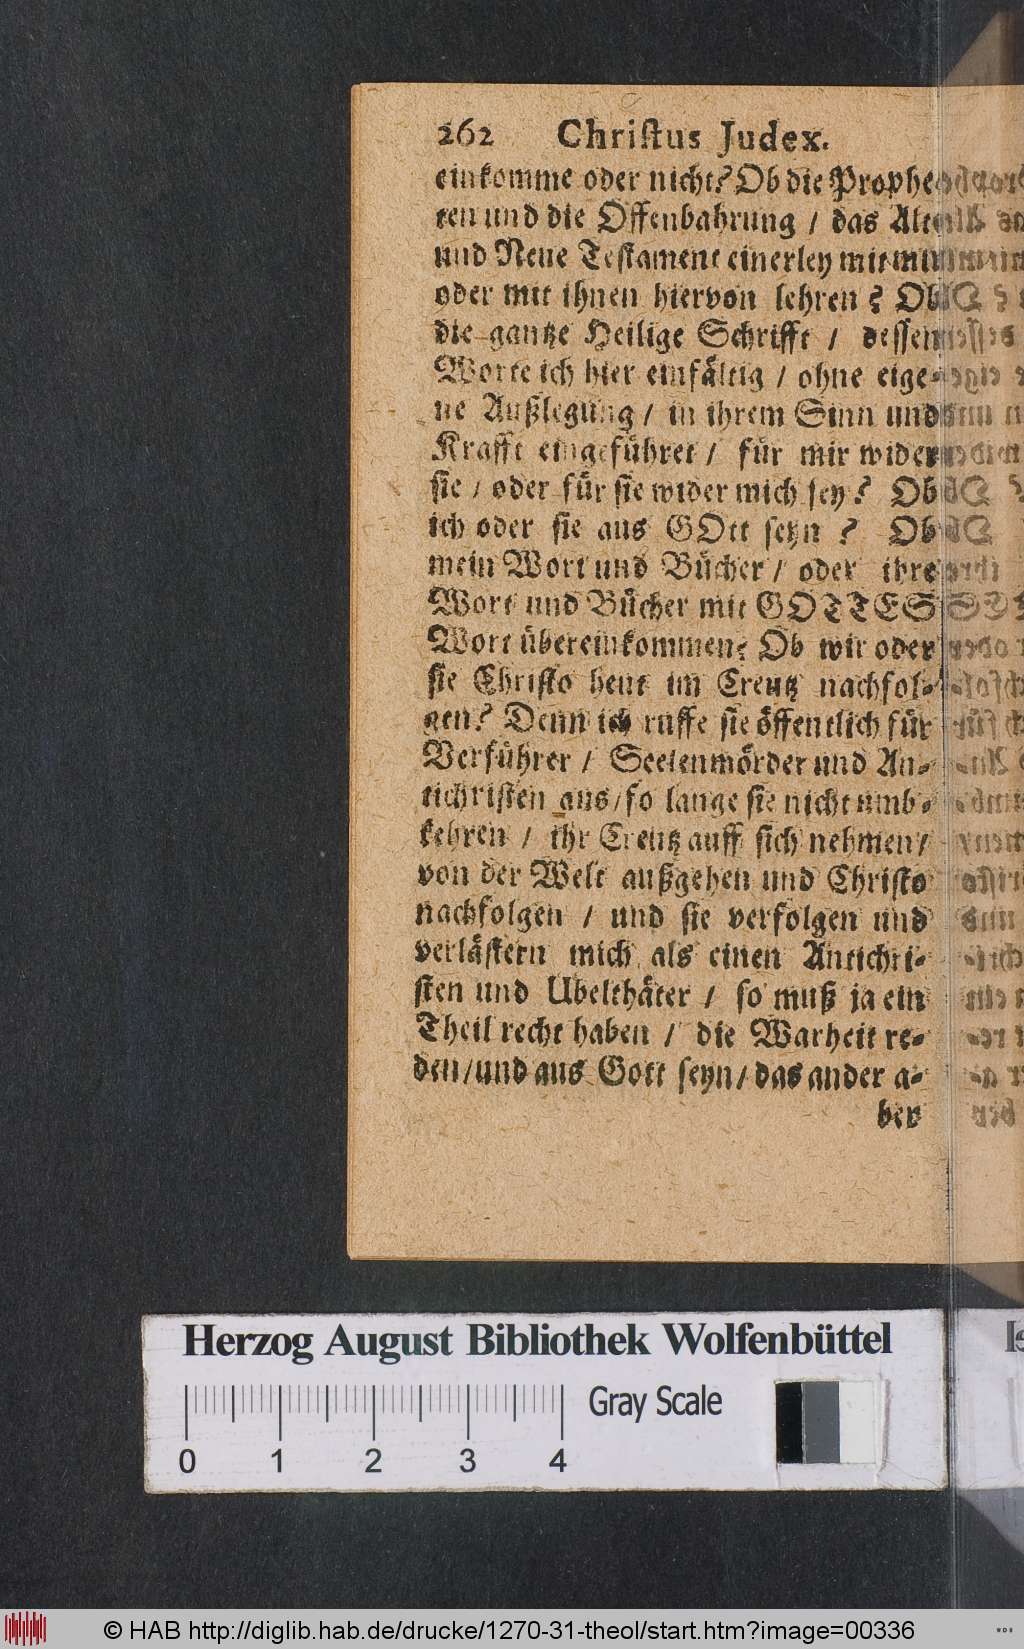 262 Christus Judex.
einkomme oder nicht? Ob die Prophe-
ten und die Offenbahrung / das Alte
und Neue Testament einerley mit mir
oder mit ihnen hiervon lehren? Ob
die gantze Heilige Schrifft / dessen
Worte ich hier einfältig / ohne eige-
ne Außlegung / in ihrem Sinn und
Krafft eingeführet / für mir wider
sie / oder für sie wider mich sey? Ob
ich oder sie aus GOtt seyn? Ob
mein Wort und Bücher / oder ihre
Wort und Bücher mit GOTTES
Wort übereinkommen? Ob wir oder
sie Christo heut im Creutz nachfol-
gen? Denn ich ruffe sie öffentlich für
Verführer / Seelenmörder und An-
tichristen aus / so lange sie nicht umb-
kehren / ihr Creutz auff sich nehmen /
von der Welt außgehen und Christo
nachfolgen / und sie verfolgen und
verlästern mich als einen Antichri-
sten und Ubelthäter / so muß ja ein
Theil recht haben / die Warheit re-
den / und aus Gott seyn / das ander a-
ber
Herzog August Bibliothek Wolfenbüttel
Gray Scale
0 1 2 3 4
© HAB http://diglib.hab.de/drucke/1270-31-theol/start.htm?image=00336